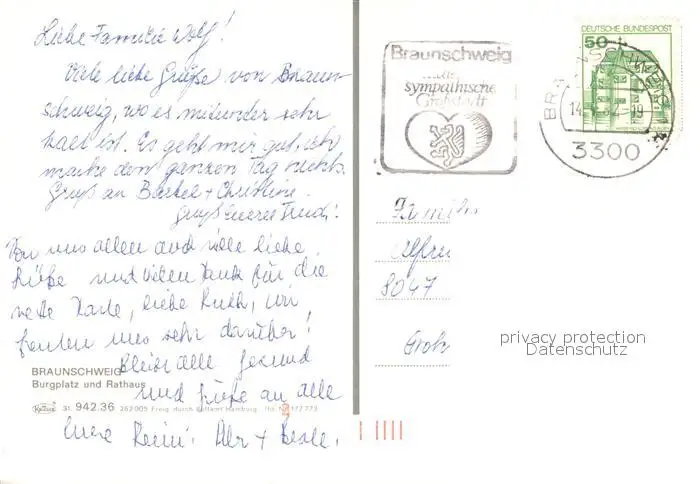 Liebe Familie Wolf!
Viele liebe Grüße von Braun-
schweig, wo es mitunter sehr
kalt ist. Es geht mir gut, ich
mache den ganzen Tag nichts.
Gruß an Bärbel + Christine.
Gruß
Von uns allen auch viele liebe
Grüße und vielen Dank für die
nette Karte, liebe Ruth, wir
freuten uns sehr darüber!
Bleibt alle gesund
und Grüße an alle
Eure
BRAUNSCHWEIG
Burgplatz und Rathaus
Krüger 31. 942.36 262005 Freig. durch Luftamt Hamburg
Braunschweig
sympathische
Großstadt
DEUTSCHE BUNDESPOST
50
BRAUNSCHWEIG
14 -19
3300
Famili
Alfre
8047
privacy protection
Datenschutz